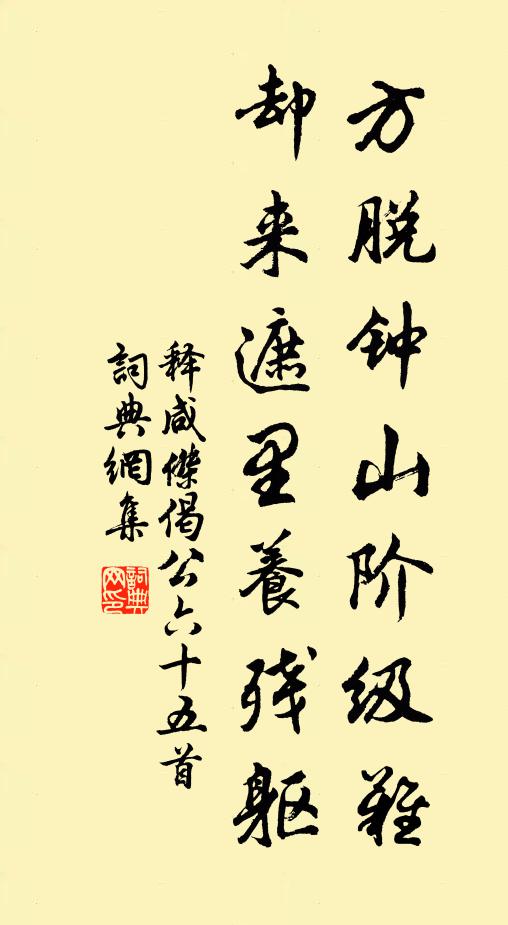 方脱钟山阶级难
却来遮里養残躯
释咸傑偈公六十五首
詞典網集
詞典網印